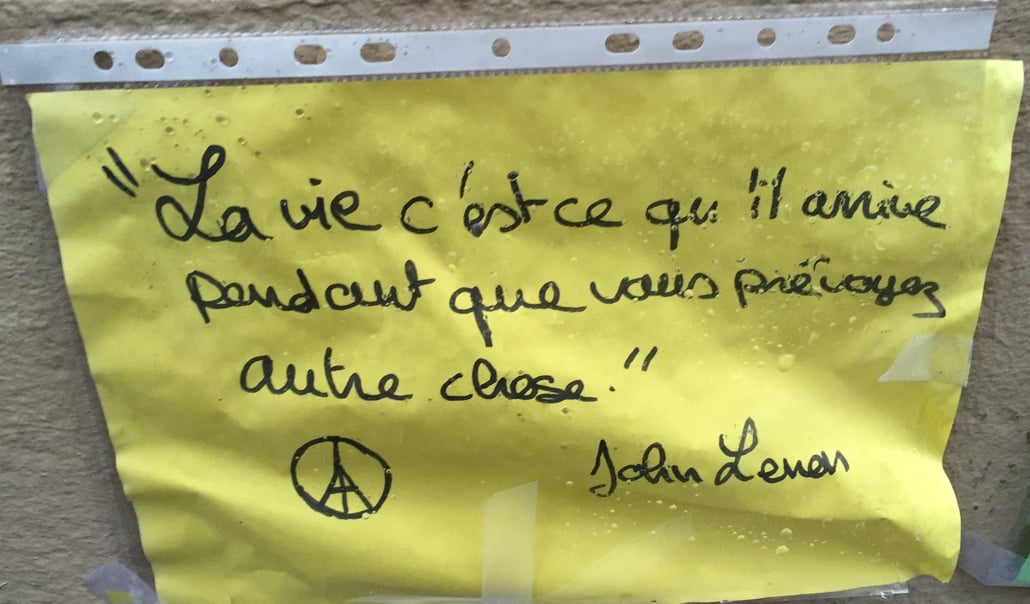 "La vie c'est ce qu'il arrive
pendant que vous prévoyez
autre chose."
John Lenon